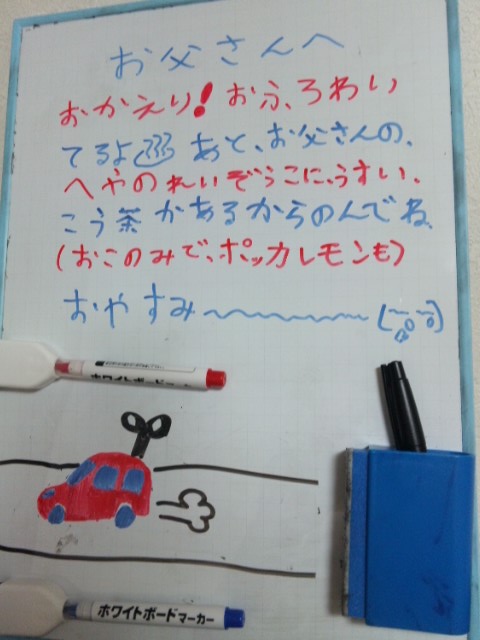 お父さんへ
おかえり!おふろわい
てるよ♨あと、お父さんの、
へやのれいぞうこに、うすい、
こう茶があるからのんでね、
(おこのみで、ポッカレモンも)
おやすみ〜〜〜〜〜〜
ホワイトボードマーカー
ホワイトボードマーカー